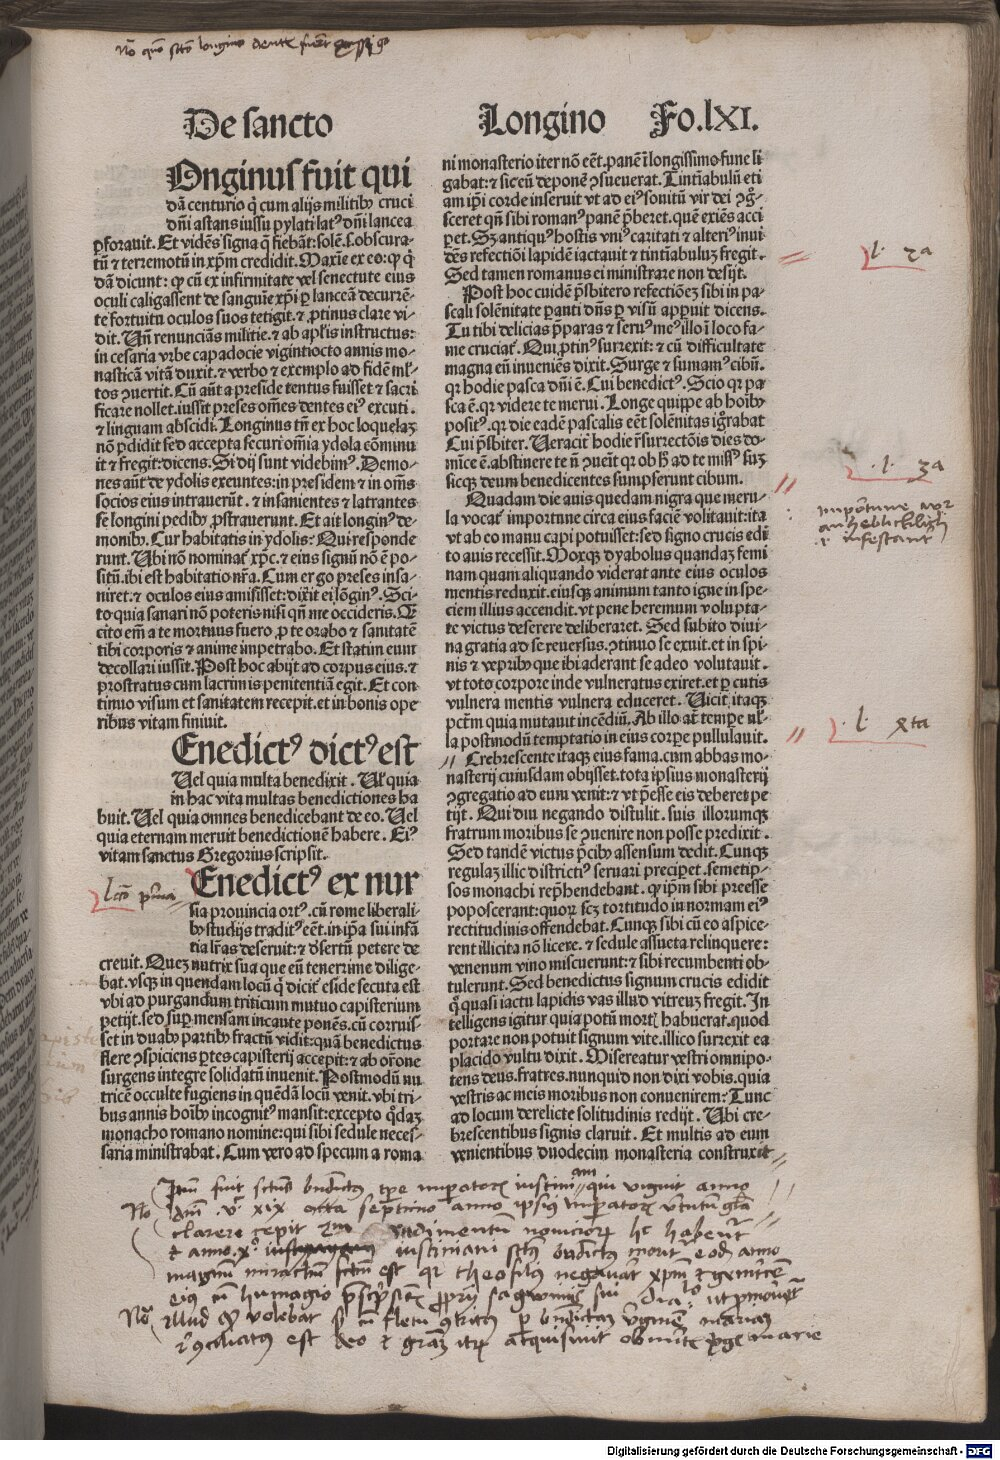 De sancto Longino Fo.lXI.
Onginus fuit qui
dā centurio q̄ cum alijs militibꝰ cruci
dn̄i astans iussu pylati latꝰ dn̄i lancea
ꝑforauit. Et vidēs signa q̄ fiebāt: solē .s. obscura⸗
tū ⁊ terremotū in xp̄m credidit. Maxīe ex eo: ꝙ qͥ
dā dicunt: ꝙ cū ex infirmitate vel senectute eius
oculi caligassent de sanguīe xp̄i ꝑ lanceā decurrē⸗
te fortuitu oculos suos tetigit. ⁊ ꝓtinus clare vi⸗
dit. Vn̄ renunciās militie. ⁊ ab apl̄is instructus:
in cesaria vrbe capadocie vigintiocto annis mo⸗
nasticā vitā duxit. ⁊ verbo ⁊ exemplo ad fidē ml̄⸗
tos ꝯuertit. Cū aūt a preside tentus fuisset ⁊ sacri
ficare nollet. iussit preses om̄es dentes eiꝰ excuti.
⁊ linguam abscidi. Longinus tn̄ ex hoc loquelaꝫ
nō ꝑdidit sed accepta securi om̄ia ydola cōminu
it ⁊ fregit: dicens. Si dij sunt videbimꝰ. Demo⸗
nes aūt de ydolis exeuntes: in presidem ⁊ in om̄s
socios eius intrauerūt. ⁊ insanientes ⁊ latrantes
se longini pedibꝰ ꝓstrauerunt. Et ait longinꝰ de⸗
monibꝰ. Cur habitatis in ydolis: Qui responde
runt. Vbi nō nominat᷑ xp̄c. ⁊ eius signū nō ē po⸗
sitū. ibi est habitatio nr̄a. Cum ergo preses insa⸗
niret. ⁊ oculos eius amisisset: dixit ei lōginꝰ. Sci⸗
to quia sanari nō poteris nisi qn̄ me occideris. E
cito em̄ a te mortuus fuero, ꝓ te orabo ⁊ sanitatē
tibi corporis ⁊ anime impetrabo. Et statim eum
decollari iussit. Post hoc abijt ad corpus eius. ⁊
prostratus cum lacrimis penitentiā egit. Et con
tinuo visum et sanitatem recepit. et in bonis ope
ribus vitam finiuit.
Enedictꝰ dictꝰ est
Vel quia multa benedixit. Vl̄ quia
in hac vita multas benedictiones ha
buit. Vel quia omnes benedicebant de eo. Vel
quia eternam meruit benedictionē habere. Eiꝰ
vitam sanctus Gregorius scripsit.
Enedictꝰ ex nur
sia prouincia ortꝰ. cū rome liberali⸗
bꝰ studijs traditꝰ eēt. in ip̄a sui infā
tia lr̄as deseruit: ⁊ d̄sertū petere de
creuit. Queꝫ nutrix sua que eū tenerrime dilige⸗
bat. vsqꝫ in quendam locū q̄ dicit᷑ eside secuta est
vbi ad purgandum triticum mutuo capisterium
petijt. sed suꝑ mensam incaute ponēs. cū corruis⸗
set in duabꝰ partibꝰ fractū vidit: quā benedictus
flere ꝯspiciens ꝑtes capisterij accepit: ⁊ ab or̄one
surgens integre solidatū inuenit. Postmodū nu
tricē occulte fugiens in quēdā locū venit. vbi tri⸗
bus annis hoībꝰ incognitꝰ mansit: excepto qͦdaꝫ
monacho romano nomine: qui sibi sedule neces⸗
saria ministrabat. Cum vero ad specum a roma
ni monasterio iter nō eēt. panē ī longissimo fune li
gabat: ⁊ sic eū deponē ꝯsueuerat. Tintīabulū eti
am ip̄i corde inseruit vt ad eiꝰ sonitū vir dei ꝯg̾⸗
sceret qn̄ sibi romanꝰ panē p̄beret. quē exiēs acci
ꝑet. Sꝫ antiquꝰ hostis vniꝰ caritati ⁊ alteriꝰ inui
dēs refectiōi lapidē iactauit ⁊ tintīabuluꝫ fregit.
Sed tamen romanus ei ministrare non desijt.
Post hoc cuidē p̄sbitero refectiōeꝫ sibi in pa⸗
scali solēnitate ꝑanti dn̄s ꝑ visū apꝑuit dicens.
Tu tibi delicias p̄paras ⁊ seruꝰ meꝰ illo ī loco fa⸗
me cruciat᷑. Qui ꝓtinꝰ surrexit: ⁊ cū difficultate
magna eū inueniēs dixit. Surge ⁊ sumamꝰ cibū.
qꝛ hodie pasca dn̄i ē. Cui benedictꝰ. Scio qꝛ pa⸗
sca ē. qꝛ videre te merui. Longe quippe ab hoībꝰ
positꝰ. qꝛ die eadē pascalis eēt solēnitas ig̾rabat
Cui p̄sbiter. Veracit᷑ hodie r̄surrectōis dies do⸗
mīce ē. abstinere te n̄ ꝯuenit qꝛ ob h̄ ad te missꝰ suꝫ
sicqꝫ deum benedicentes sumpserunt cibum.
Quadam die auis quedam nigra que meru⸗
la vocat᷑ importune circa eius faciē volitauit: ita
vt ab eo manu capi potuisset: sed signo crucis edi
to auis recessit. Moxqꝫ dyabolus quandaꝫ femi
nam quam aliquando viderat ante eius oculos
mentis reduxit. eiusqꝫ animum tanto igne in spe⸗
ciem illius accendit. vt pene heremum volupta⸗
te victus deserere deliberaret. Sed subito diui⸗
na gratia ad se reuersus. ꝯtinuo se exuit. et in spi⸗
nis ⁊ vepribꝰ que ibi aderant se adeo volutauit.
vt toto corpore inde vulneratus exiret. et ꝑ cutis
vulnera mentis vulnera educeret. Vicit itaqꝫ
pctm̄ quia mutauit incēdiū. Ab illo at̄ temꝑe ul̄⸗
la postmodū temptatio in eius corꝑe pullulauit.
Crebrescente itaqꝫ eius fama. cum abbas mo⸗
nasterij cuiusdam obijsset. tota ipsius monasterij
ꝯgregatio ad eum venit: ⁊ vt p̄esse eis deberet pe
tijt. Qui diu negando distulit. suis illorumqꝫ
fratrum moribus se ꝯuenire non posse predixit.
Sed tandē victus p̄cibꝰ assensum dedit. Cumqꝫ
regulaꝫ illic districtiꝰ seruari preciꝑet. semetip⸗
sos monachi repͥhendebant. ꝙ ip̄m sibi preesse
poposcerant: quoꝝ scꝫ tortitudo in normam eiꝰ
rectitudinis offendebat. Cumqꝫ sibi cū eo aspice⸗
rent illicita nō licere. ⁊ sedule assueta relinquere:
venenum vino miscuerunt: ⁊ sibi recumbenti ob⸗
tulerunt. Sed benedictus signum crucis edidit
⁊ quasi iactu lapidis vas illud vitreuꝫ fregit. In
telligens igitur quia potū mortꝭ habuerat. quod
portare non potuit signum vite. illico surrexit ea
placido vultu dixit. Misereatur vestri omnipo⸗
tens deus. fratres. nunquid non dixi vobis. quia
vestris ac meis moribus non conuenirem: Tunc
ad locum derelicte solitudinis redijt. Vbi cre⸗
brescentibus signis claruit. Et multis ad eum
venientibus duodecim monasteria construxit⸗
Digitalisierung gefördert durch die Deutsche Forschungsgemeinschaft - DFG